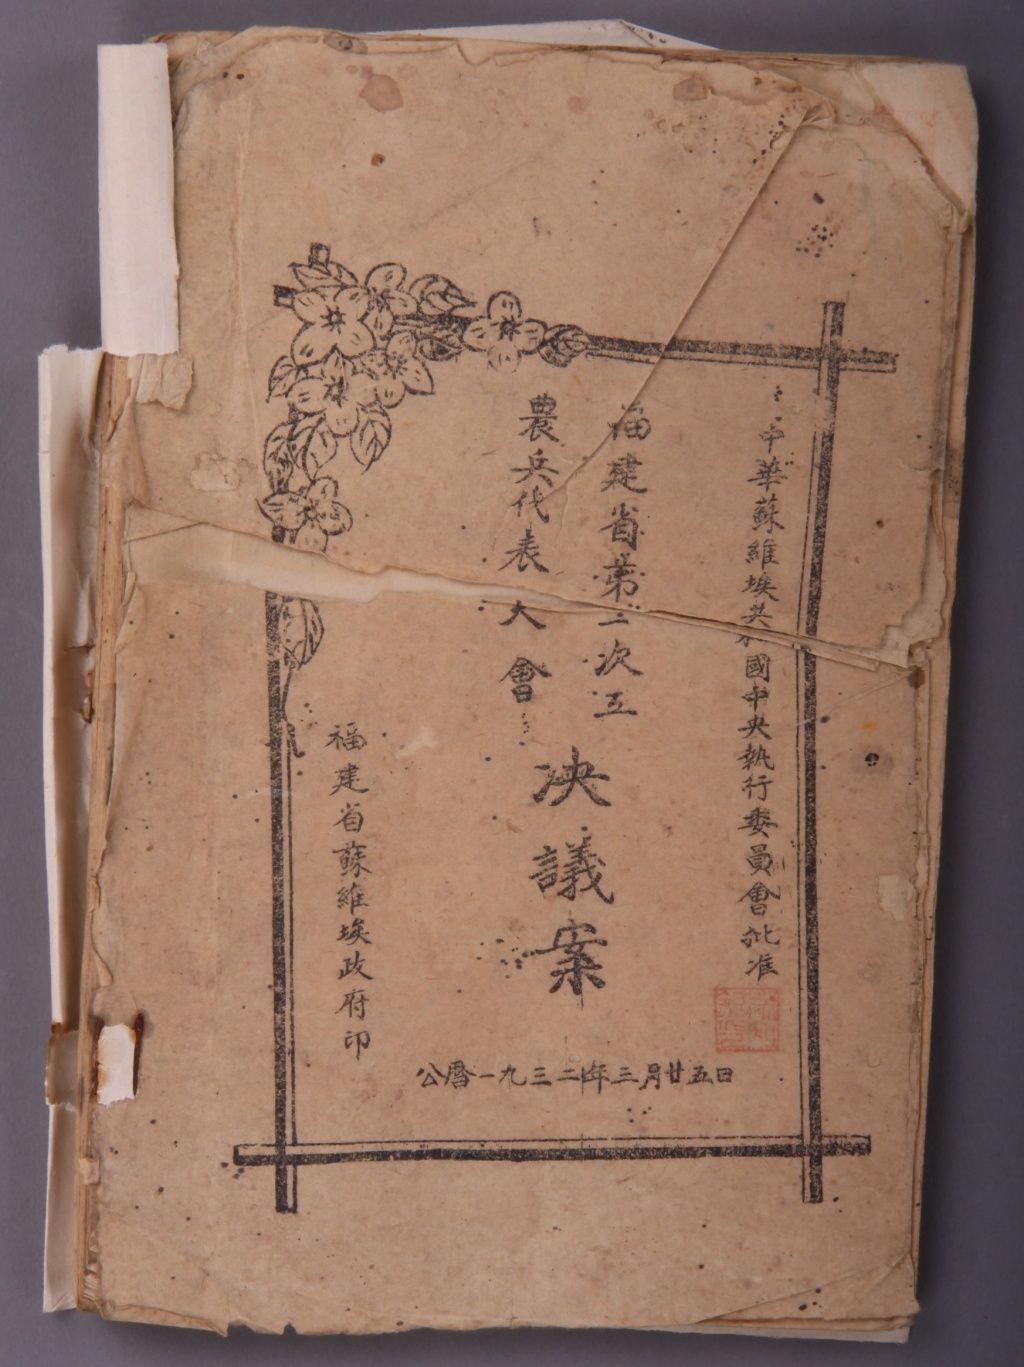 中華蘇維埃共和國中央執行委員會批准
福建省第一次工
農兵代表大會
决議案
福建省蘇維埃政府印
公曆一九三二年三月廿五日